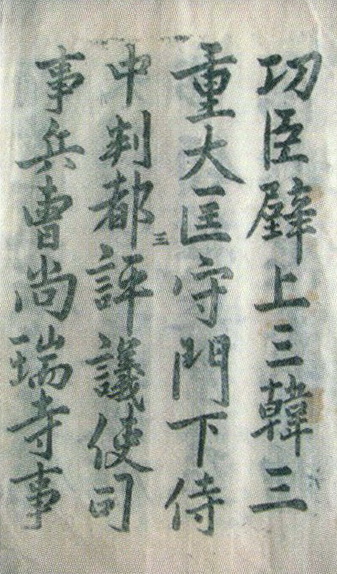 功臣壁上三韓三
重大匡守門下侍
三
中判都評議使司
事兵曹尚瑞寺事